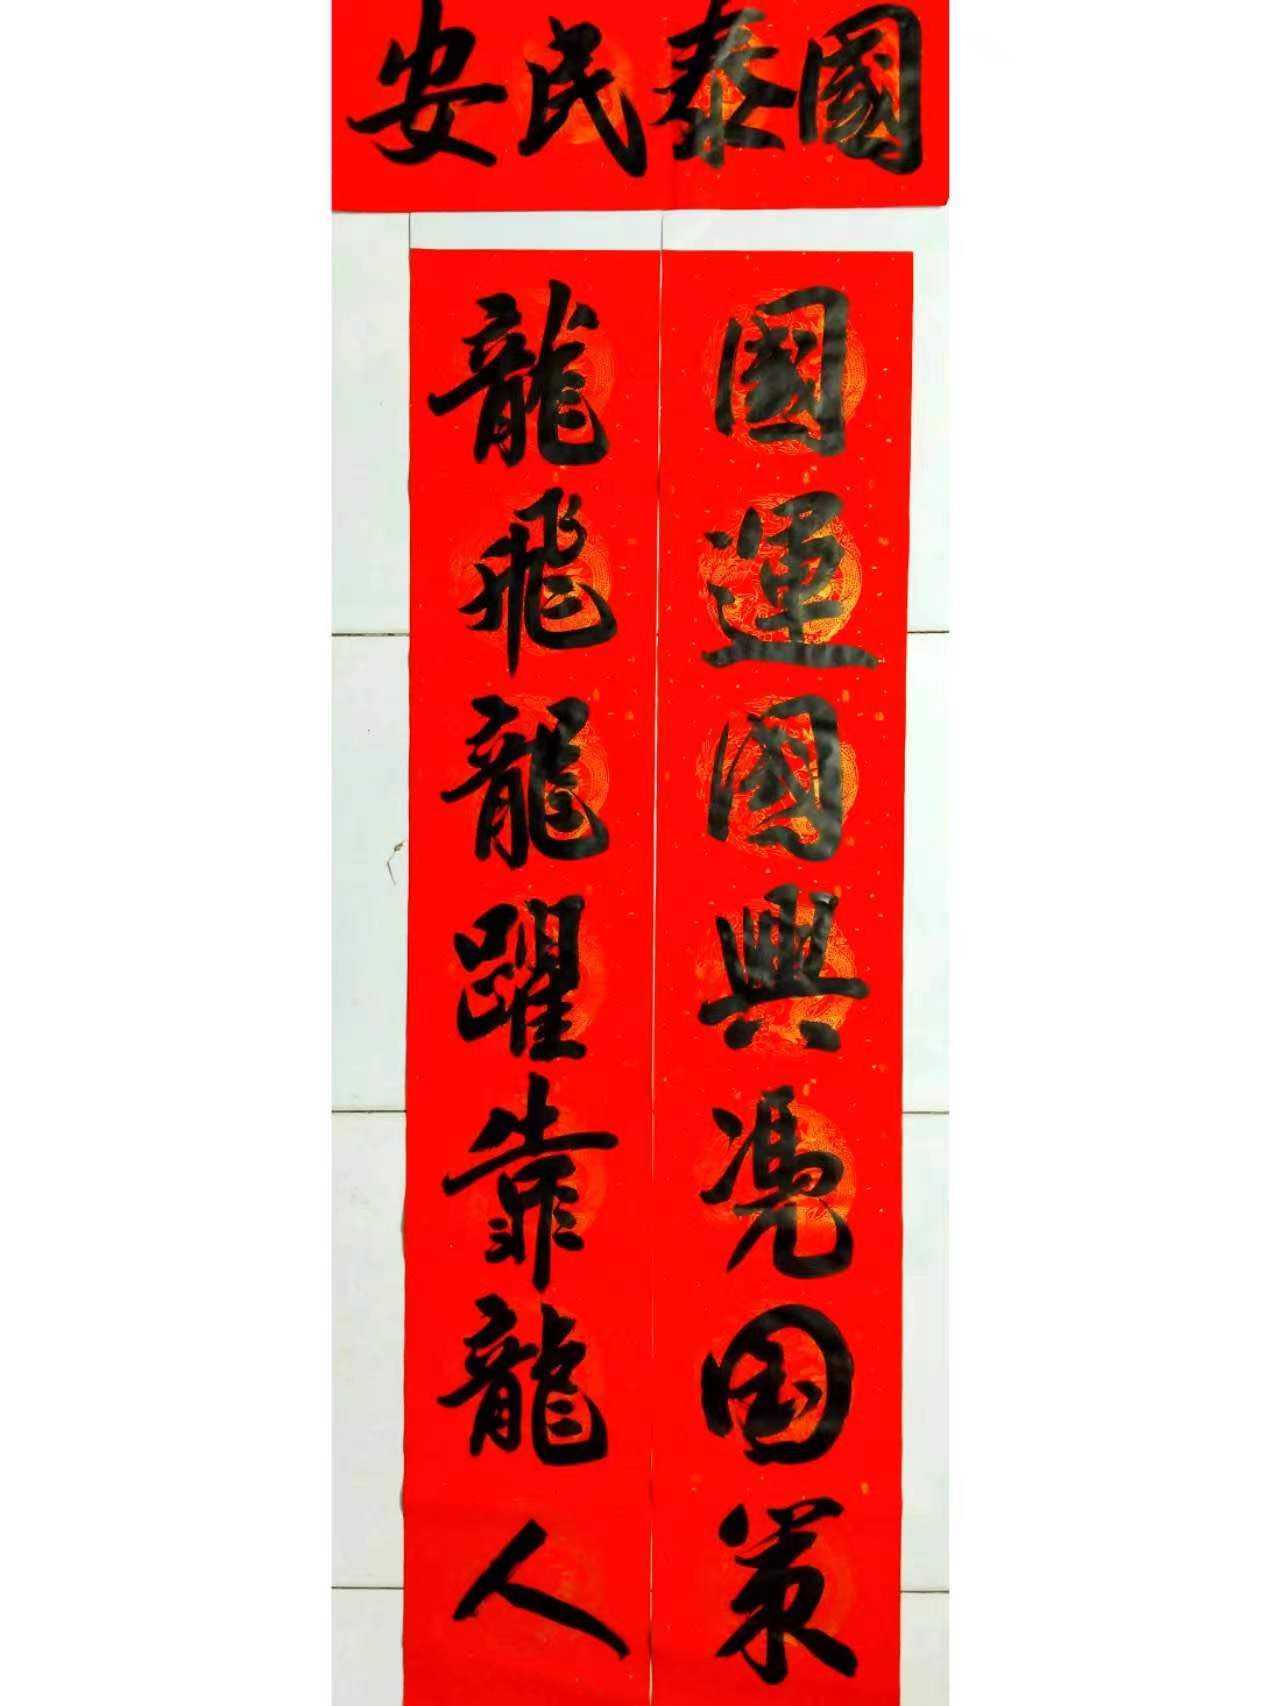 國泰民安
國運國興憑国策
龍飛龍躍靠龍人